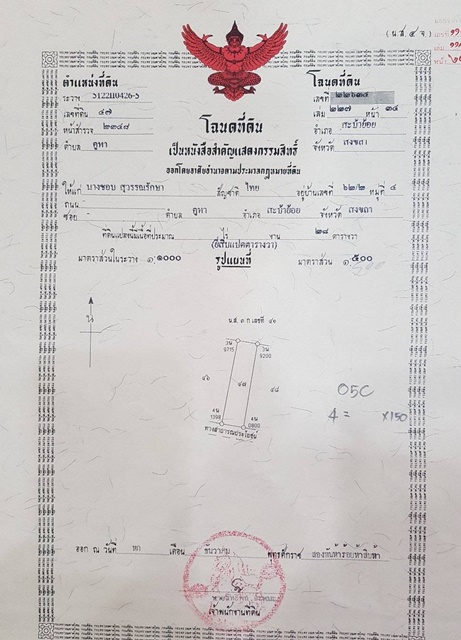 (น.ส.๔ จ.)
ตำแหน่งที่ดิน
ระวาง 5122II0426-5
เลขที่ดิน ๔๗
หน้าสำรวจ ๒๓๔๗
ตำบล คูหา
โฉนดที่ดิน
เลขที่ ๒๒๖๓๔
เล่ม ๒๒๗ หน้า ๓๔
อำเภอ สะบ้าย้อย
จังหวัด สงขลา
โฉนดที่ดิน
เป็นหนังสือสำคัญแสดงกรรมสิทธิ์
ออกโดยอาศัยอำนาจตามประมวลกฎหมายที่ดิน
ให้แก่ นางชอบ สุวรรณรักษา สัญชาติ ไทย อยู่บ้านเลขที่ ๖๒/๒ หมู่ที่ ๔
ถนน
ซอย - ตำบล คูหา อำเภอ สะบ้าย้อย จังหวัด สงขลา
ที่ดินแปลงนี้มีเนื้อที่ประมาณ ไร่ งาน ๒๘ ตารางวา
(ยี่สิบแปดตารางวา)
มาตราส่วนในระวาง ๑:๑๐๐๐ รูปแผนที่ มาตราส่วน ๑:๕๐๐
น
น.ส. ๓ ก เลขที่ ๔๒
๔๖
๔๗
๔๘
ทางสาธารณประโยชน์
050
4 = x150
ออก ณ วันที่ หก เดือน ธันวาคม พุทธศักราช สองพันห้าร้อยห้าสิบห้า
เจ้าพนักงานที่ดิน